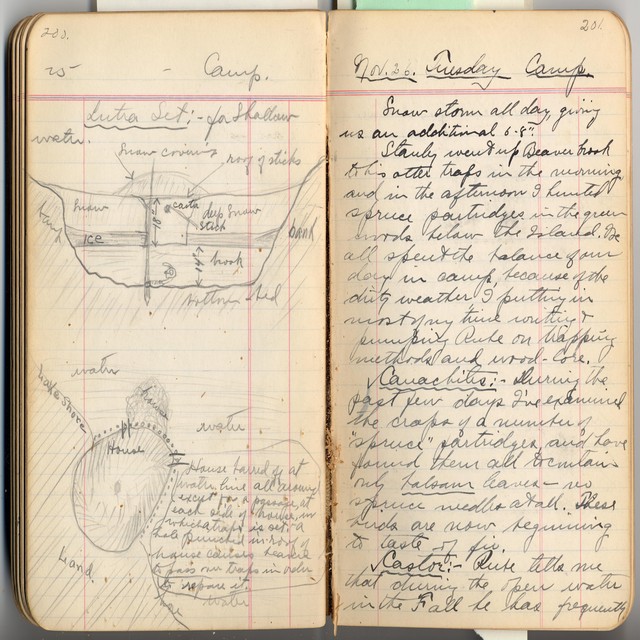 200.
Camp.
Lutra Set:- for Shallow
water.
Snow covering
roof of sticks
Snow
casta
deep snow
stick
land
ICE
land
brook
bottom - bed
water
Lake Shore
house
water
House
House barred off at
water line all around
except for a passage at
each side of house, in
which a trap is set. A
hole punched in roof of
house causes beaver
to pass over traps in order
to repair it.
Land.
water
201.
Nov. 26. Tuesday Camp.
Snow storm all day, giving
us an additional 6-8".
Stanly went up Beaver brook
to his otter traps in the morning
and in the afternoon I hunted
spruce partridges in the green
woods below the Island. We
all spent the balance of our
day in camp, because of the
dirty weather I putting in
most of my time writing &
pumping Rube on trapping
methods and wood-lore.
Canachites:- During the
past few days I've examined
the crops of a number of
"spruce" partridges, and have
found them all to contain
only balsam leaves - no
spruce needles at all. These
birds are now beginning
to taste of fir.
Castor:- Rube tells me
that during the open water
in the Fall he has frequently